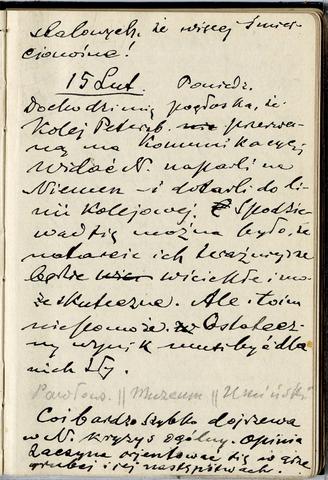 stalowych, że więcej śmier-
cionośne!
15 Lut. Poniedz.
Dochodzi mię pogłoska, że
Kolej Petersb. przerwa-
ną ma komunikację.
Widać N. naparli na
Niemen - i dotarli do li-
nii kolejowej. Spodzie-
wać się można było, że
natarcie ich teraźniejsze
będzie wściekłe i mo-
że skuteczne. Ale i to im
nie pomoże. Ostatecz-
ny wynik musi być dla
nich zły.
Powołons. || Muzeum ||
Coś bardzo szybko dojrzewa
w N. kryzys ogólny. Opinia
zaczyna orjentować się w grze
grubej i jej następstwach.